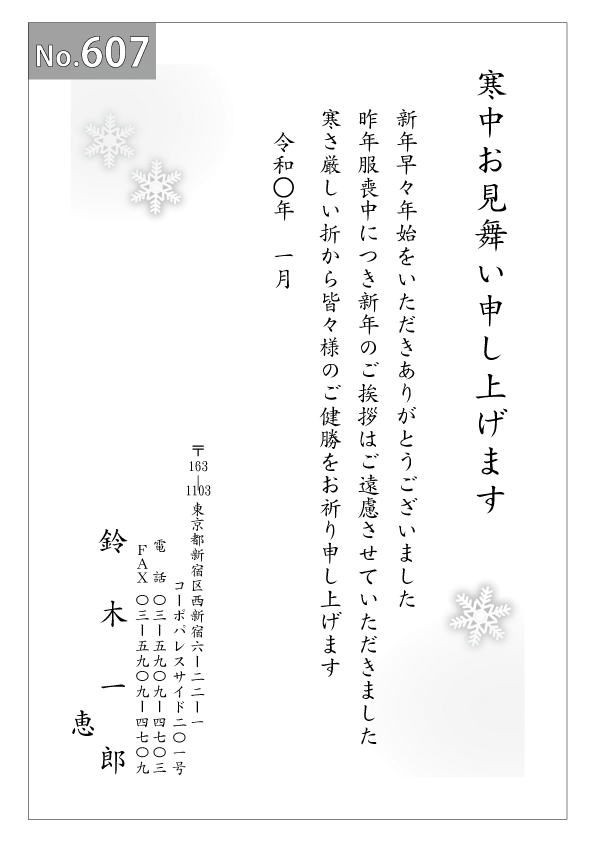 No.607
寒中お見舞い申し上げます
新年早々年始をいただきありがとうございました
昨年服喪中につき新年のご挨拶はご遠慮させていただきました
寒さ厳しい折から皆々様のご健勝をお祈り申し上げます
令和〇年　一月
〒163-1103 東京都新宿区西新宿六ー二二ー一
コーポパレスサイド二〇一号
電　話 〇三ー五九〇九ー四七〇三
ＦＡＸ 〇三ー五九〇九ー四七〇九
鈴木一郎
恵